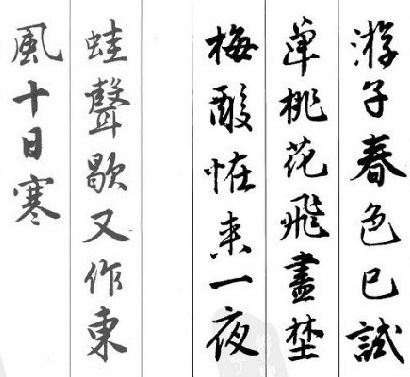 游子春色已試
單桃花飛盡埜
梅酸恠来一夜
蛙聲歇又作東
風十日寒